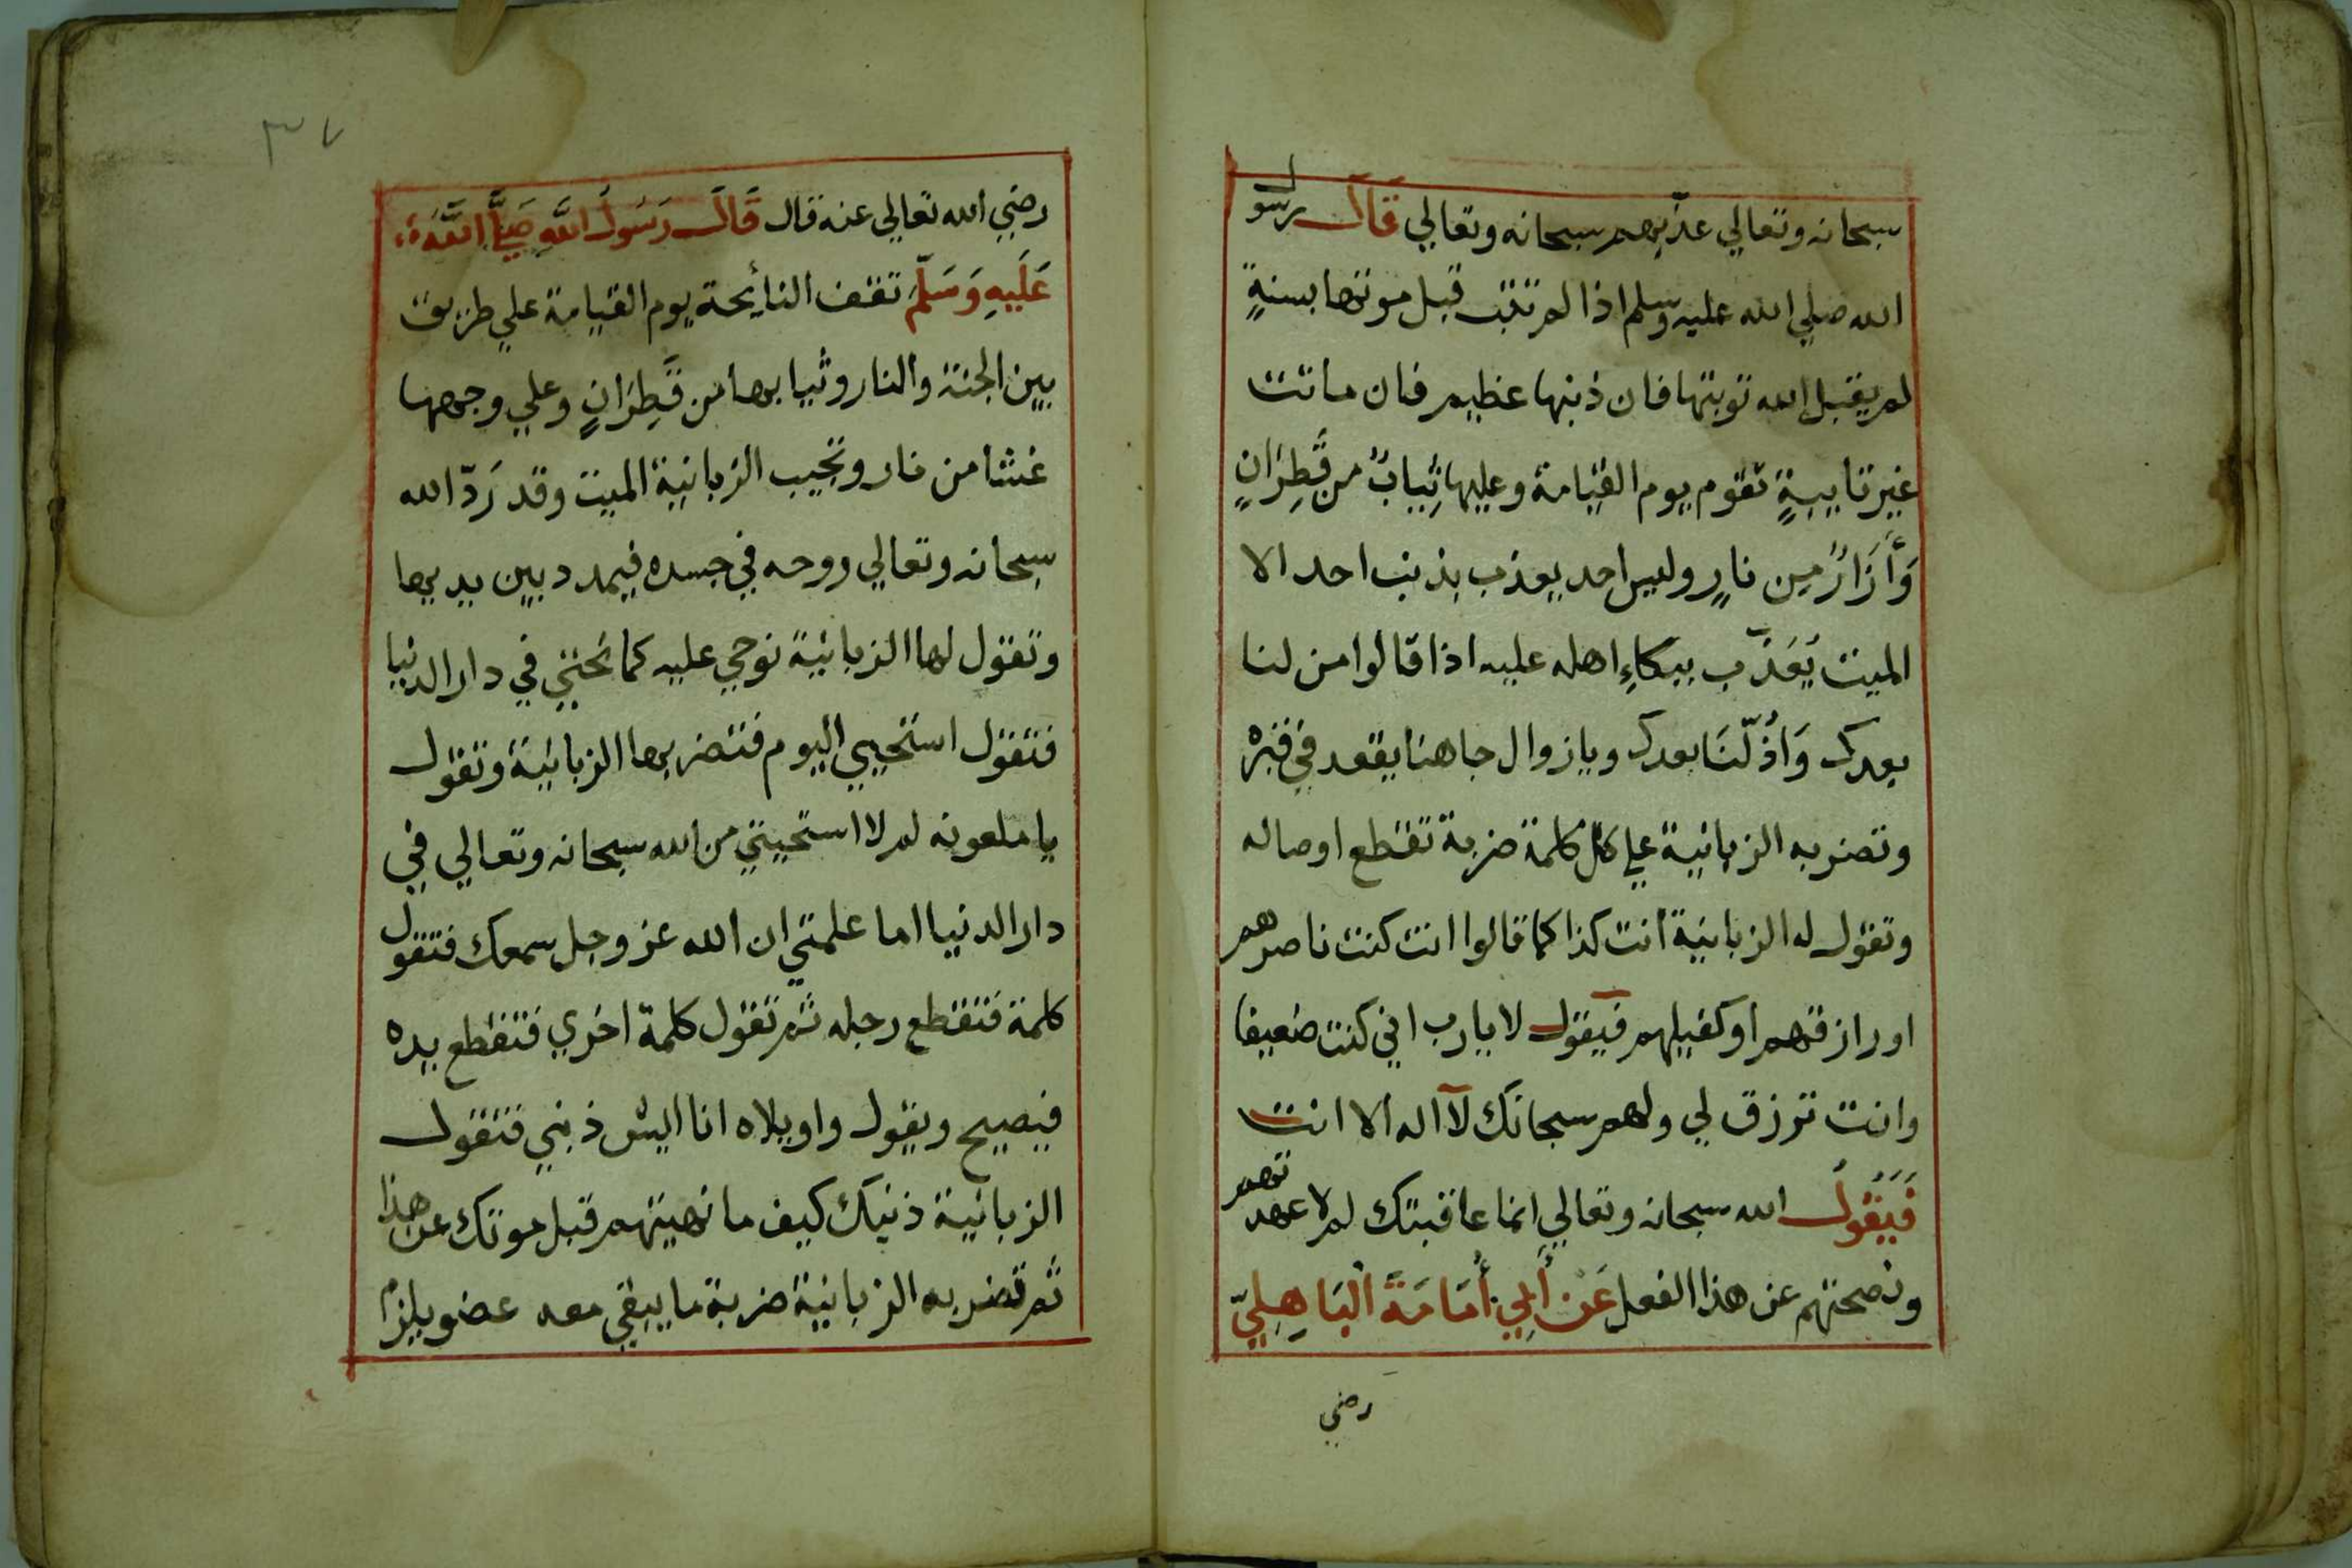 سبحانه وتعالي عذبهم سبحانه وتعالي قال رسول
الله صلي الله عليه وسلم اذا لم تتب قبل موتها بسنةٍ
لم يقبل الله توبتها فان ذنبها عظيم فان ماتت
غير تايبةٍ تقوم يوم القيامة وعليها ثيابٌ من قَطِرَانٍ
وَأَزَارٌ مِن نارٍ وليس احد يعذب بذنب احد الا
الميت يُعَذَّب ببكاءِ اهله عليه اذا قالوا من لنا
بعدك وَاذُلّنَا بعدك ويا زوال جاهنا يقعد في قبره
وتضربه الزبانية علي كل كلمة ضربة تقطع اوصاله
وتقول له الزبانية أنت كذا كما قالوا انت كنت ناصرهم
او رازقهم او كفيلهم فيقول لا يا رب اني كنت ضعيفا
وانت ترزق لي ولهم سبحانك لآ اله الا انت
فَيَقُولُ الله سبحانه وتعالي انما عاقبتك لم لا عهدتهم
ونصحتهم عن هذا الفعل عَنْ أَبِي أُمَامَةَ الْبَاهِلِيّ
رضي
٣٧
رضي الله تعالي عنه قال قَالَ رَسُولُ اللَّهِ صَلَّي اللَّهُ
عَلَيهِ وَسَلَّم تقف النائحة يوم القيامة علي طريق
بين الجنة والنار وثيابها من قَطِرَانٍ وعلي وجهها
غشا من نار وتجيب الزبانية الميت وقد رَدّ الله
سبحانه وتعالي روحه في جسده فيمدد بين يديها
وتقول لها الزبانية نوحي عليه كما نُحتي في دار الدنيا
فتقول استحيي اليوم فتضربها الزبانية وتقول
يا ملعونه لم لا استحيتي من الله سبحانه وتعالي في
دار الدنيا اما علمتي ان الله عز وجل سمعك فتقول
كلمة فتقطع رجله ثم تقول كلمة اخري فتقطع يده
فيصيح ويقول واويلاه انا ايش ذنبي فتقول
الزبانية ذنبك كيف ما نهيتهم قبل موتك عن هذا
ثم تضربه الزبانية ضربة ما يبقي معه عضو يلزم